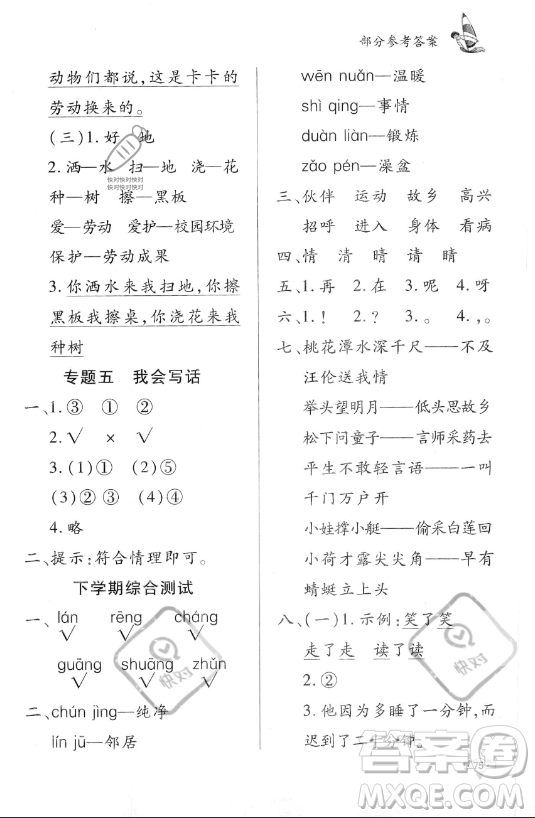 部分参考答案
动物们都说,这是卡卡的
劳动换来的。
(三)1.好 地
2.洒—水 扫—地 浇—花
种—树 擦—黑板
爱—劳动 爱护—校园环境
保护—劳动成果
3.你洒水来我扫地,你擦
黑板我擦桌,你浇花来我
种树
专题五 我会写话
一、1.③ ① ②
2.√ × √
3.(1)① (2)⑤
(3)②③ (4)④
4.略
二、提示:符合情理即可。
下学期综合测试
一、lán rēng cháng
√ √ √
guāng shuāng zhǔn
√ √ √
二、chún jìng—纯净
lín jū—邻居
wēn nuǎn—温暖
shì qing—事情
duàn liàn—锻炼
zǎo pén—澡盆
三、伙伴 运动 故乡 高兴
招呼 进入 身体 看病
四、情 清 晴 请 睛
五、1.再 2.在 3.呢 4.呀
六、1.! 2.? 3.。 4.,。
七、桃花潭水深千尺——不及
汪伦送我情
举头望明月——低头思故乡
松下问童子——言师采药去
平生不敢轻言语——一叫
千门万户开
小娃撑小艇——偷采白莲回
小荷才露尖尖角——早有
蜻蜓立上头
八、(一)1.示例:笑了笑
走了走 读了读
2.②
3.他因为多睡了一分钟,而
迟到了二十分钟。
快对
快对
答案圈
MXQE.COM